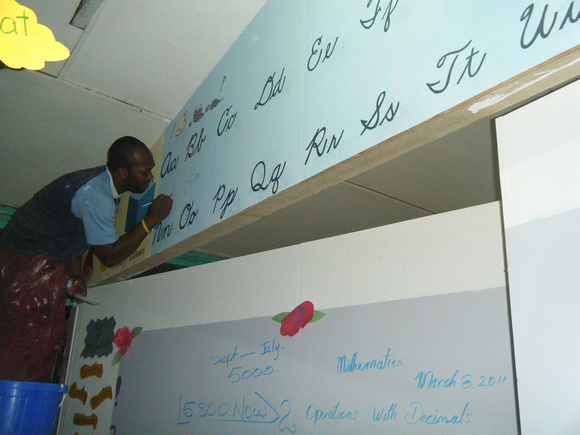 at
Aa Bb Cc Dd Ee Ff
Nn Oo Pp Qq Rr Ss Tt Uu
Sept - July.
5000.
Mathematics
March 8, 2011
5800 Now 2
Operations With Decimals